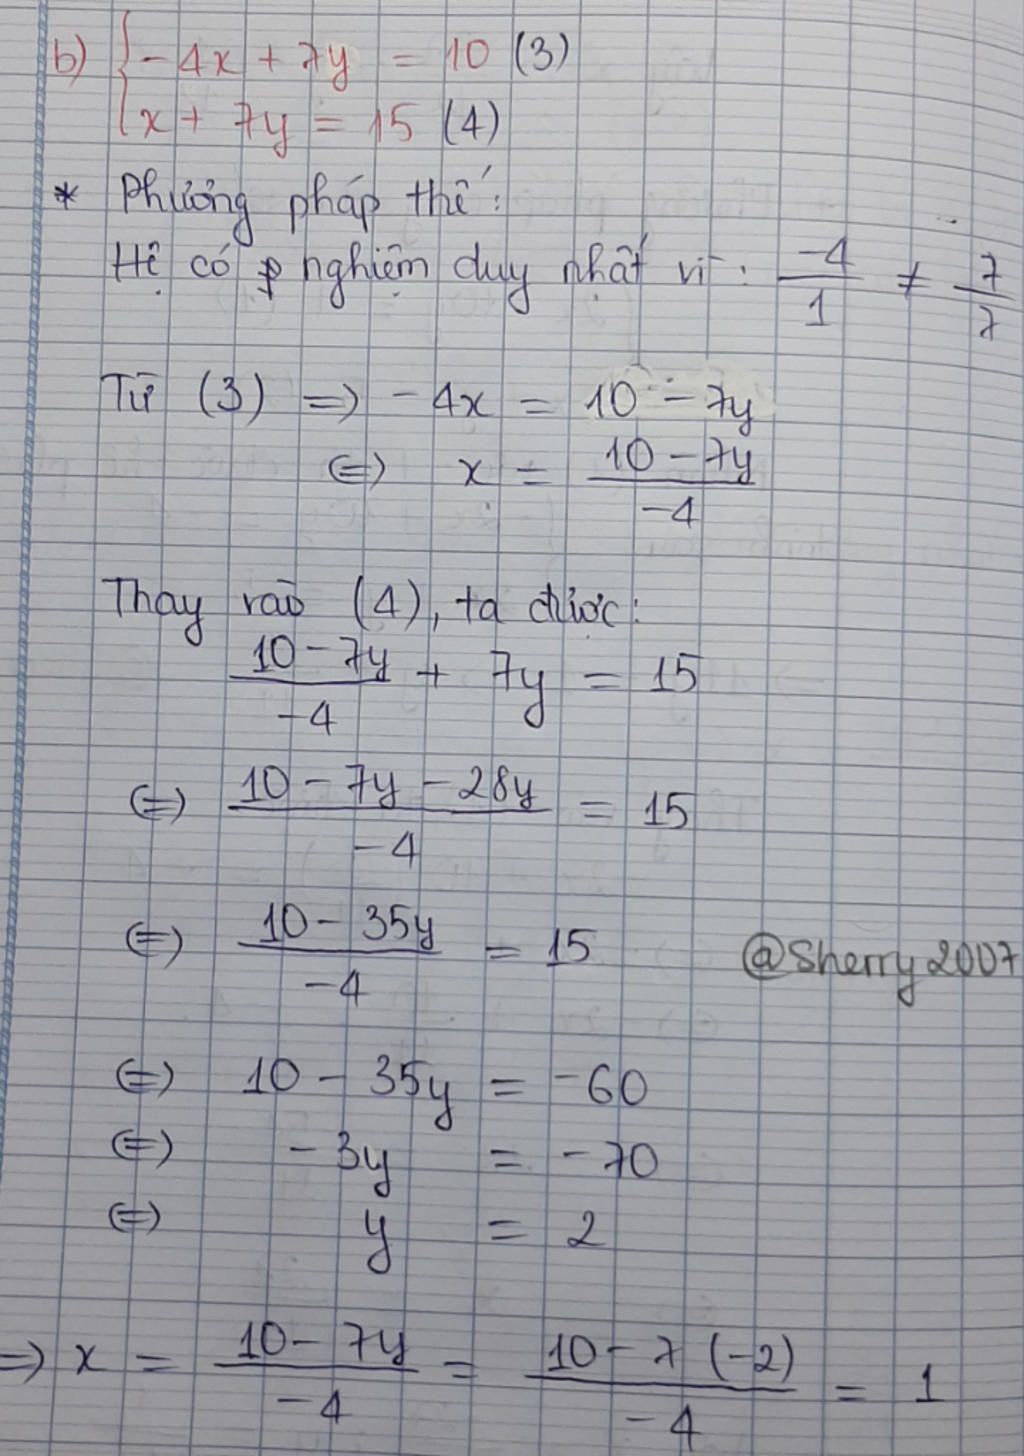 b) { -4x + 7y = 10 (3)
x + 7y = 15 (4)
* Phương pháp thế:
Hệ có nghiệm duy nhất vì: -4/1 ≠ 7/7
Từ (3) => -4x = 10 - 7y
(=) x = (10 - 7y)/-4
Thay vào (4), ta được:
(10 - 7y)/-4 + 7y = 15
(=) (10 - 7y - 28y)/-4 = 15
(=) (10 - 35y)/-4 = 15
@Sherry2007
(=) 10 - 35y = -60
(=) -3y = -70
(=) y = 2
=> x = (10 - 7y)/-4 = (10 - 7 (-2))/-4 = 1